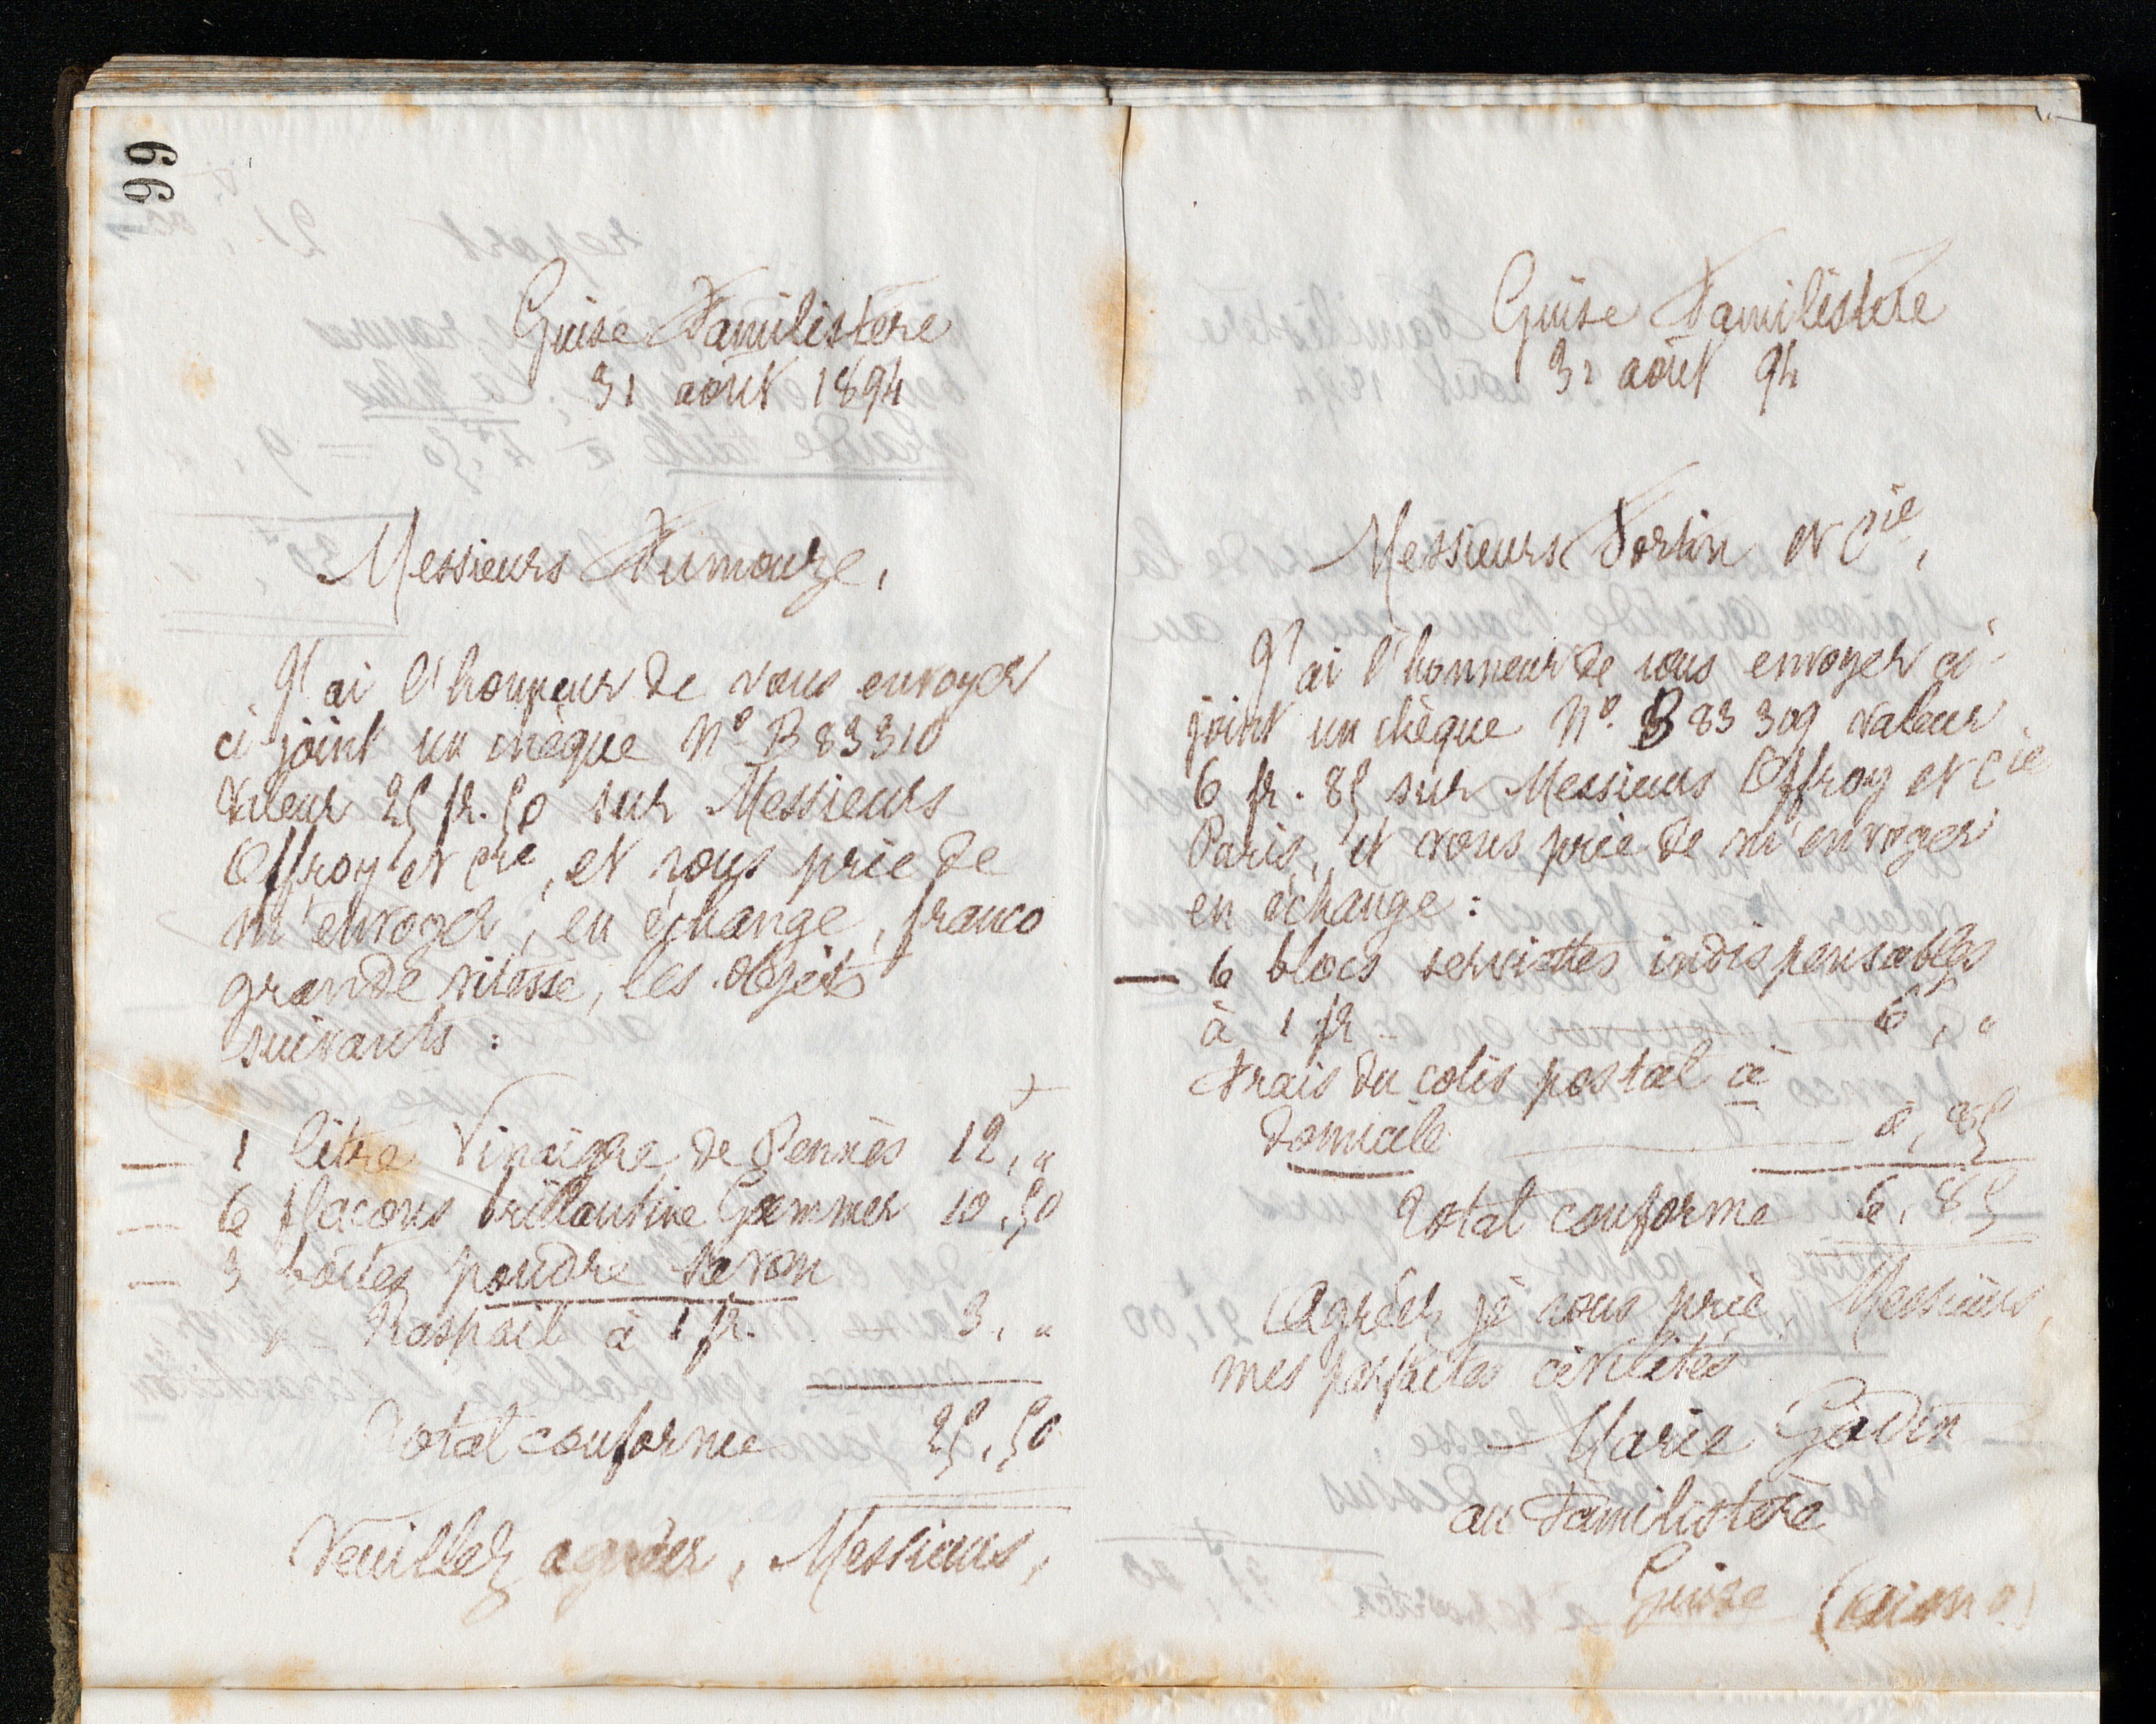 99
Guise Familistère
31 août 1894
Messieurs Fumouze,
J'ai l'honneur de vous envoyer
ci-joint un chèque Nº B 83310
valeur 25 fr. 50 sur Messieurs
Offroy et Cie, et vous prie de
m'envoyer, en échange, franco
grande vitesse, les objets
suivants :
— 1 litre Vinaigre de Pennès 12, "
— 6 flacons brillantine Grammer 10,50
— 3 boîtes poudre savon
Raspail à 1 fr. — 3, "
Total conforme 25,50
Veuillez agréer, Messieurs,
Guise Familistère
31 août 94
Messieurs Fortin et Cie,
J'ai l'honneur de vous envoyer ci-
joint un chèque Nº. B 83 309 valeur
6 fr. 85 sur Messieurs Offroy et Cie
Paris, et vous prie de m'envoyer
en échange :
— 6 blocs serviettes indispensables
à 1 fr — 6, "
Frais du colis postal à
domicile — 0,85
Total conforme 6,85
Agréez je vous prie, Messieurs,
mes parfaites civilités
Marie Godin
au Familistère
Guise (Aisne)